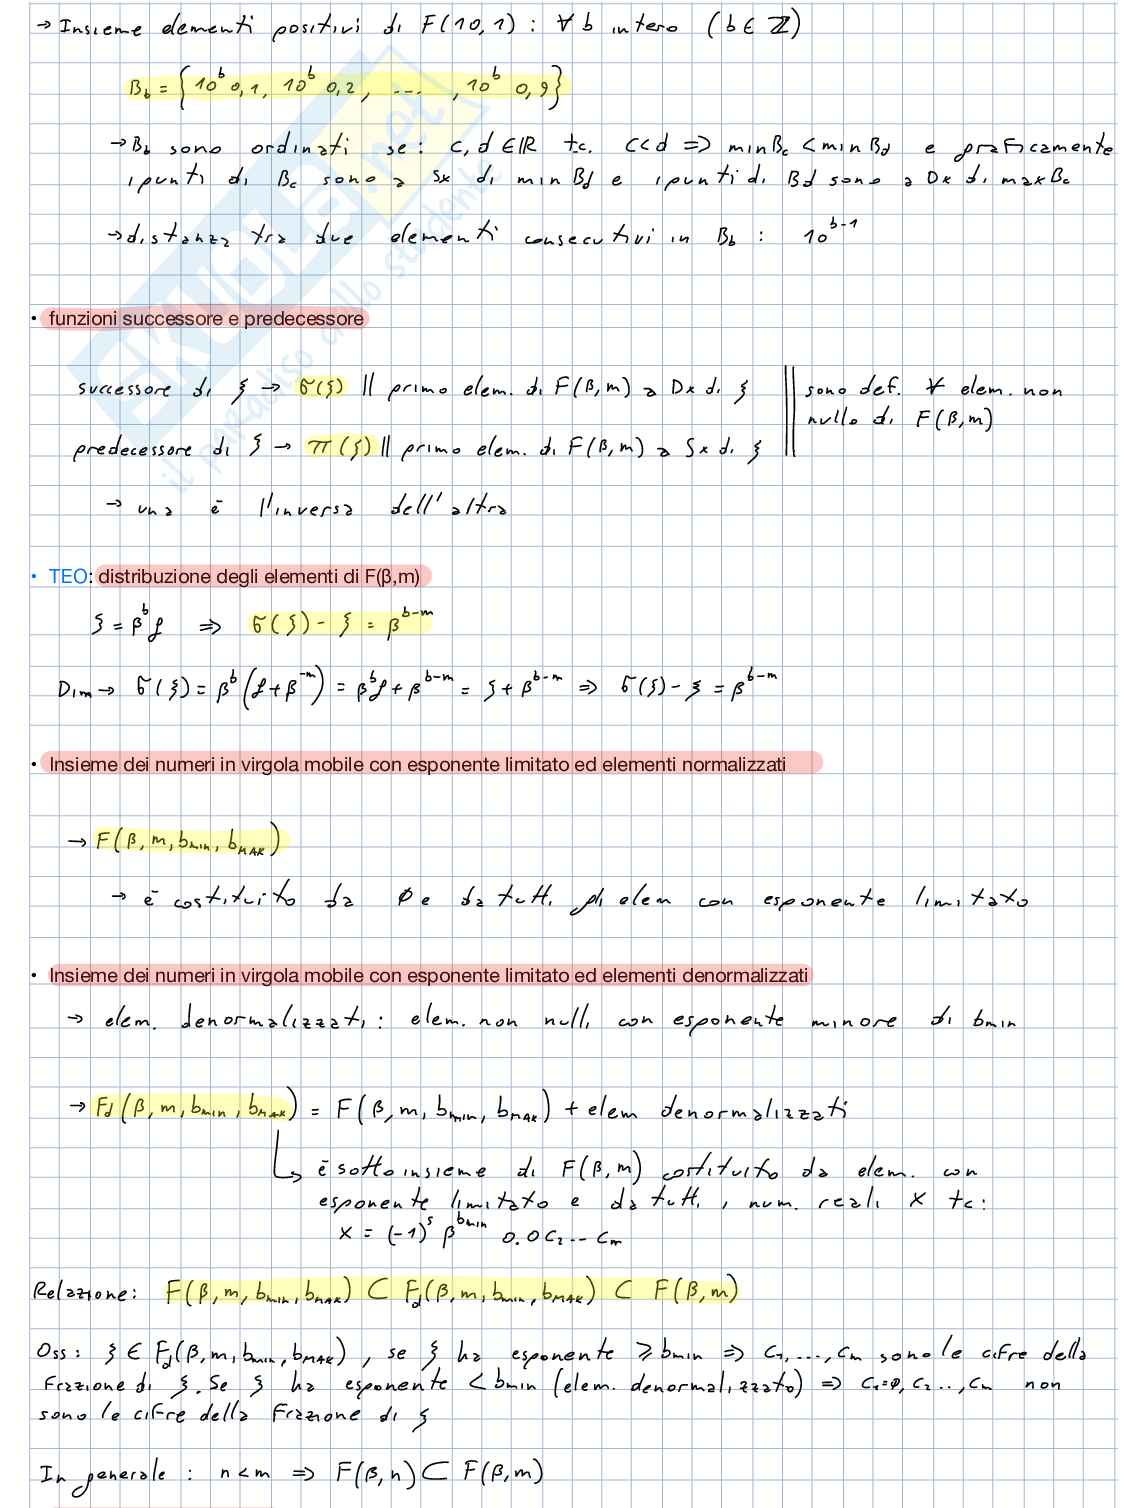 → Insieme elementi positivi di F(10,1) : ∀ b intero (b ∈ ℤ)
B_b = {10^b 0,1, 10^b 0,2, ...., 10^b 0,9}
→ B_b sono ordinati se : c, d ∈ ℝ t.c. c<d => min B_c < min B_d e graficamente
i punti di B_c sono a Sx di min B_d e i punti di B_d sono a Dx di max B_c
→ distanza tra due elementi consecutivi in B_b : 10^{b-1}
• funzioni successore e predecessore
successore di ξ → σ(ξ) || primo elem. di F(β,m) a Dx di ξ || sono def. ∀ elem. non
nullo di F(β,m)
predecessore di ξ → π(ξ) || primo elem. di F(β,m) a Sx di ξ
→ una è l'inversa dell'altra
• TEO: distribuzione degli elementi di F(β,m)
ξ = β^b f => σ(ξ) - ξ = β^{b-m}
Dim → σ(ξ) = β^b (f + β^{-m}) = β^b f + β^{b-m} = ξ + β^{b-m} => σ(ξ) - ξ = β^{b-m}
• Insieme dei numeri in virgola mobile con esponente limitato ed elementi normalizzati
→ F(β, m, b_min, b_MAX)
→ è costituito da ∅ e da tutti gli elem con esponente limitato
• Insieme dei numeri in virgola mobile con esponente limitato ed elementi denormalizzati
→ elem. denormalizzati : elem. non nulli con esponente minore di b_min
→ F_d(β, m, b_min, b_MAX) = F(β, m, b_min, b_MAX) + elem denormalizzati
↳ è sottoinsieme di F(β,m) costituito da elem. con
esponente limitato e da tutti i num. reali x tc :
x = (-1)^s β^{b_min} 0.0c_2...c_m
Relazione: F(β, m, b_min, b_MAX) ⊂ F_d(β, m, b_min, b_MAX) ⊂ F(β,m)
Oss : ξ ∈ F_d(β, m, b_min, b_MAX), se ξ ha esponente ⩾ b_min => c_1, ..., c_m sono le cifre della
frazione di ξ. Se ξ ha esponente < b_min (elem. denormalizzato) => c_1=∅, c_2 .., c_m non
sono le cifre della frazione di ξ
In generale : n<m => F(β,n) ⊂ F(β,m)
SKUOLA.net
il paradiso dello studente